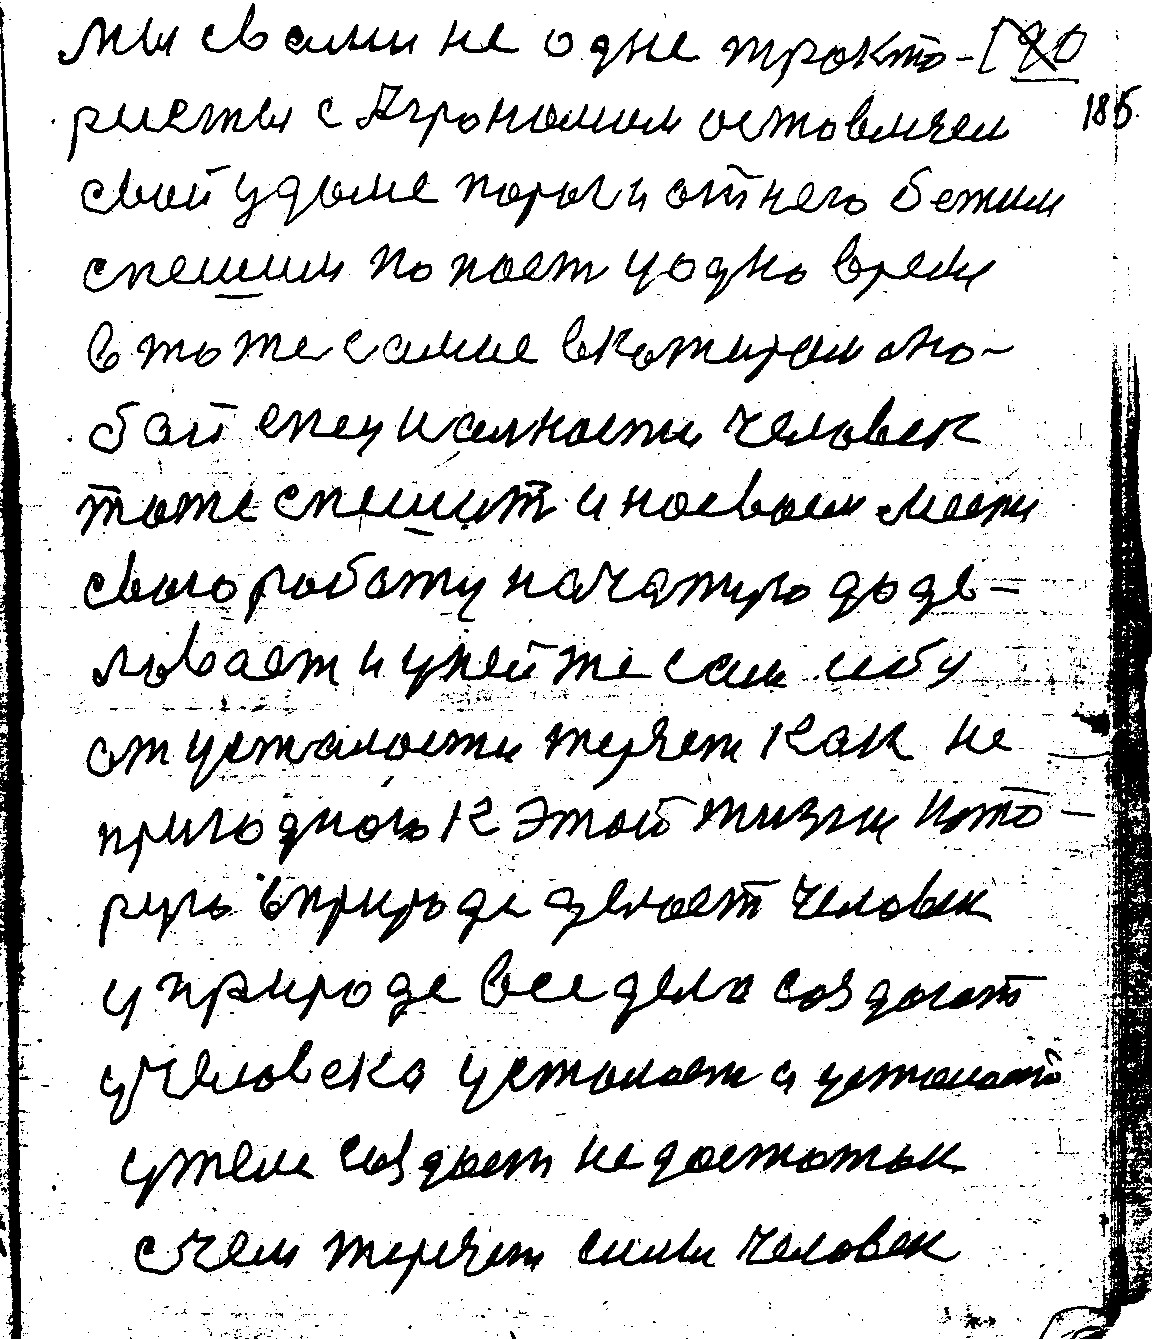 мы свами не одне тракто- [20
185
ристы с Агрономом оставляем
свой удоме порог и от него бежим
спешим попаст уодно время
в тоже самае вкотирам лю-
бой специалности человек
тоже спешит и насвоем мести
свого работу начатую доде-
ловает и уней же сам силу
от усталости теряет как не
пригодного к этой жизни кото
рую вприроде делоет человек
у природе все дела создоют
учеловека усталост а усталост
утеле создает недостаток
счем теряет силы человек